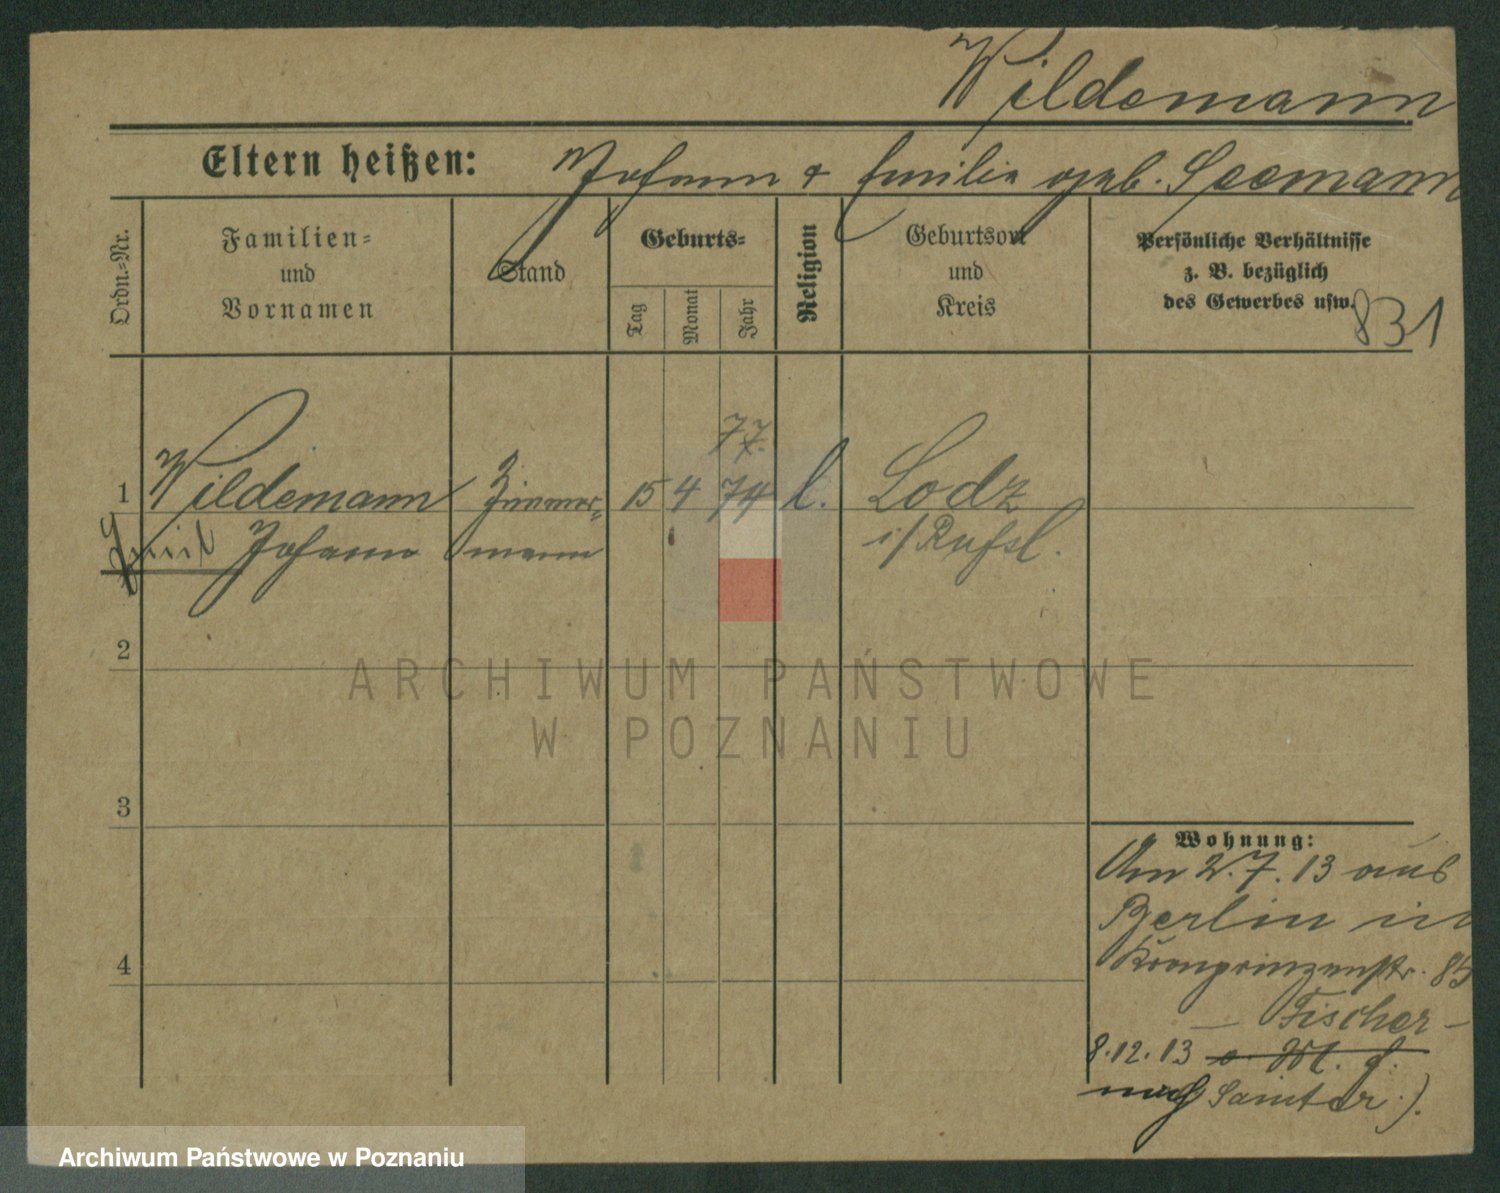 Wildemann
Eltern heißen: Johann & Emilie geb. Seemann
Ordn.-Nr.
Familien-
und
Vornamen
Stand
Geburts-
Tag
Monat
Jahr
Religion
Geburtsort
und
Kreis
Persönliche Verhältnisse
z. B. bezüglich
des Gewerbes usw.
831
77.
1 Wildemann Zimmer- 15 4 74 l. Lodz
Emil Johann mann i/Rußl.
2
3
4
Wohnung:
Am 2.7.13 aus
Berlin in
Kronprinzenstr. 85
— Fischer —
8.12.13
nach Samter.)
ARCHIWUM PAŃSTWOWE
W POZNANIU
Archiwum Państwowe w Poznaniu